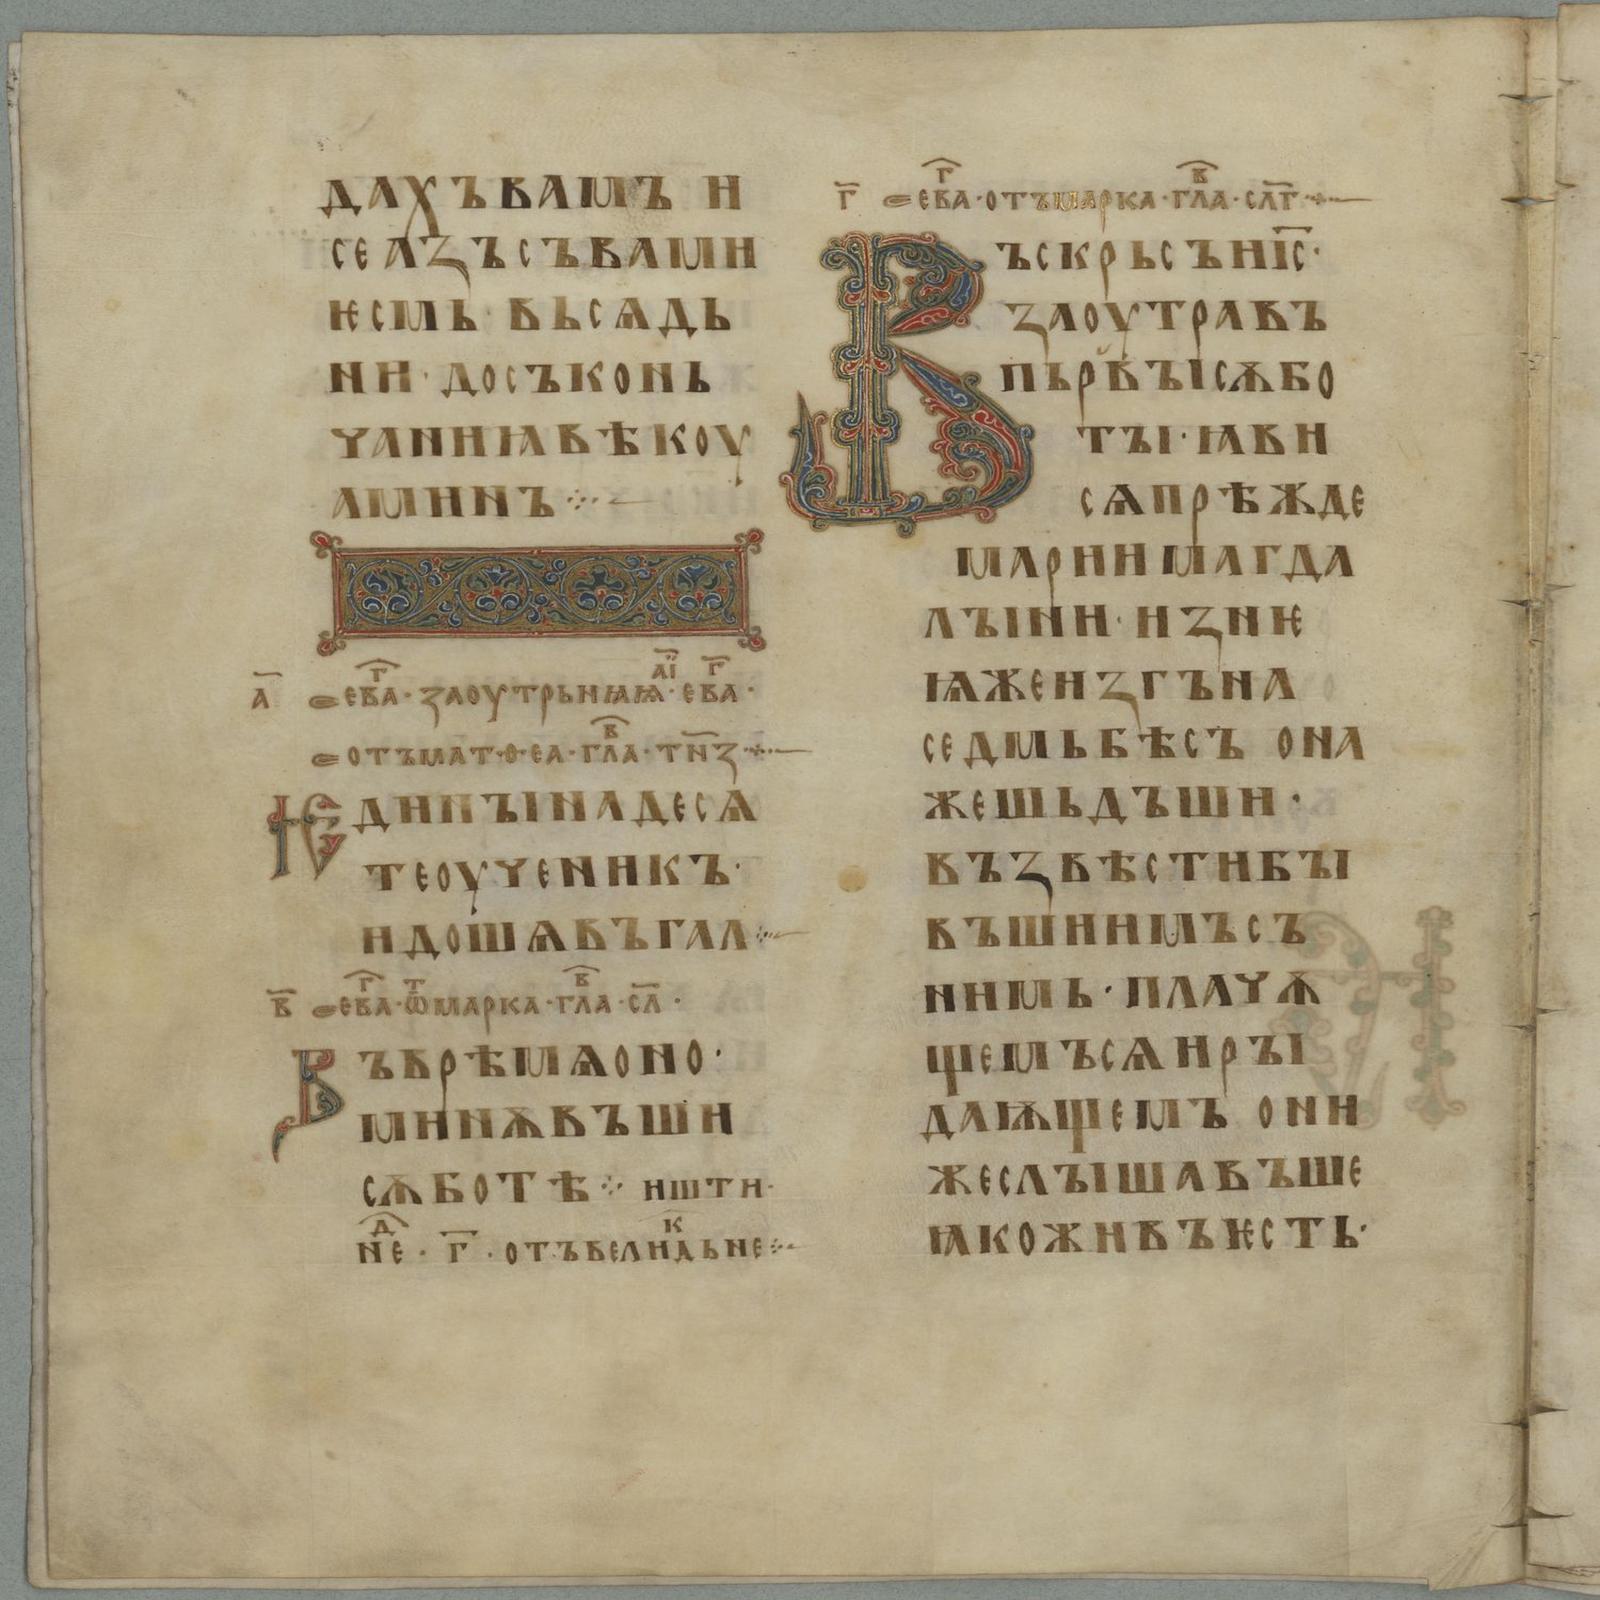 дахъвамъ и
се азъ съ вами
ѥсмь· вьсѧ дь
ни· досъконь
чаниꙗ вѣкоу
аминъ ⁘
а҃ еваⷢ҇· заоутрьнꙗꙗ· а҃і· еваⷢ҇·
отъ матѳеа· глаⷡ҇· тн҃з ⁘
Ѥдинꙑи на десѧ
те оученикъ·
идошѧ въ гал ⁘
в҃ еваⷢ҇· ѿ марка· глаⷡ҇· сл҃·
Въ врѣмѧ оно·
минѫвъши
сѫботѣ ⁘ ишти·
неⷣ· г҃· отъ великдьне ⁘
г҃ еваⷢ҇· отъ марка· глаⷡ҇· сл҃г ⁘
Въскрьсъ н іс҃·
заоутра въ
пьрвꙑ сѫбо
тꙑ· ꙗви
сѧ прѣжде
марии магда
лꙑнии· из нѥ
ꙗже изгъна
седмь бѣсъ она
же шьдъши·
възвѣсти бꙑ
въшиимъ съ
нимь· плачѫ
щемъсѧ и рꙑ
даѭщемъ они
же слꙑшавъше
ꙗко живъ ѥсть·